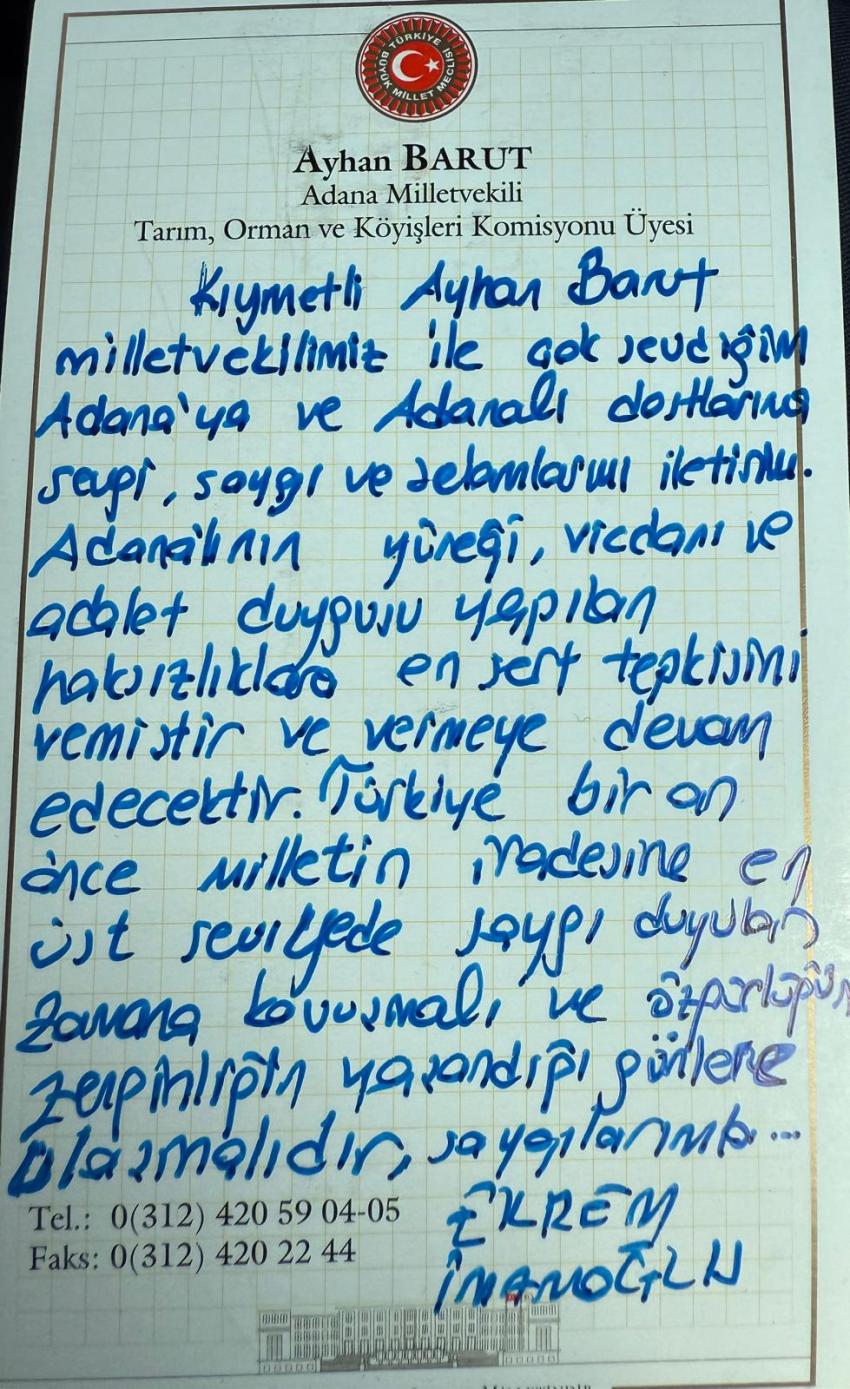 TÜRKİYE BÜYÜK MİLLET MECLİSİ
Ayhan BARUT
Adana Milletvekili
Tarım, Orman ve Köyişleri Komisyonu Üyesi
Kıymetli Ayhan Barut
milletvekilimiz ile çok sevdiğim
Adana'ya ve Adanalı dostlarıma
sevgi, saygı ve selamlarımı iletirim.
Adanalının yüreği, vicdanı ve
adalet duygusu yapılan
haksızlıklara en sert tepkisini
vermiştir ve vermeye devam
edecektir. Türkiye bir an
önce milletin iradesine en
üst seviyede saygı duyulan
zamana kavuşmalı ve özgürlüğün
zenginliğin yaşandığı günlere
ulaşmalıdır, saygılarımla...
EKREM
İMAMOĞLU
Tel.: 0(312) 420 59 04-05
Faks: 0(312) 420 22 44